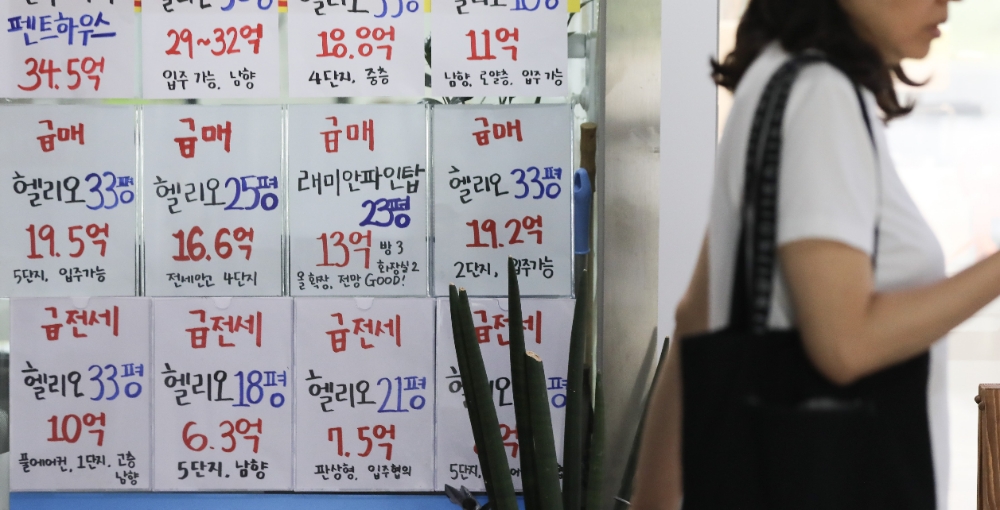 펜트하우스
34.5억
29~32억
입주 가능, 남향
18.8억
4단지, 중층
11억
남향, 로얄층, 입주 가능
급매
헬리오 33평
19.5억
5단지, 입주가능
급매
헬리오 25평
16.6억
전세안고 4단지
급매
래미안파인탑
23평
13억 방 3
화장실 2
올확장, 전망 GOOD!
급매
헬리오 33평
19.2억
2단지, 입주가능
급전세
헬리오 33평
10억
풀에어컨, 1단지, 고층
남향
급전세
헬리오 18평
6.3억
5단지, 남향
급전세
헬리오 21평
7.5억
판상형, 입주협의
급전세
평
억
5단지,